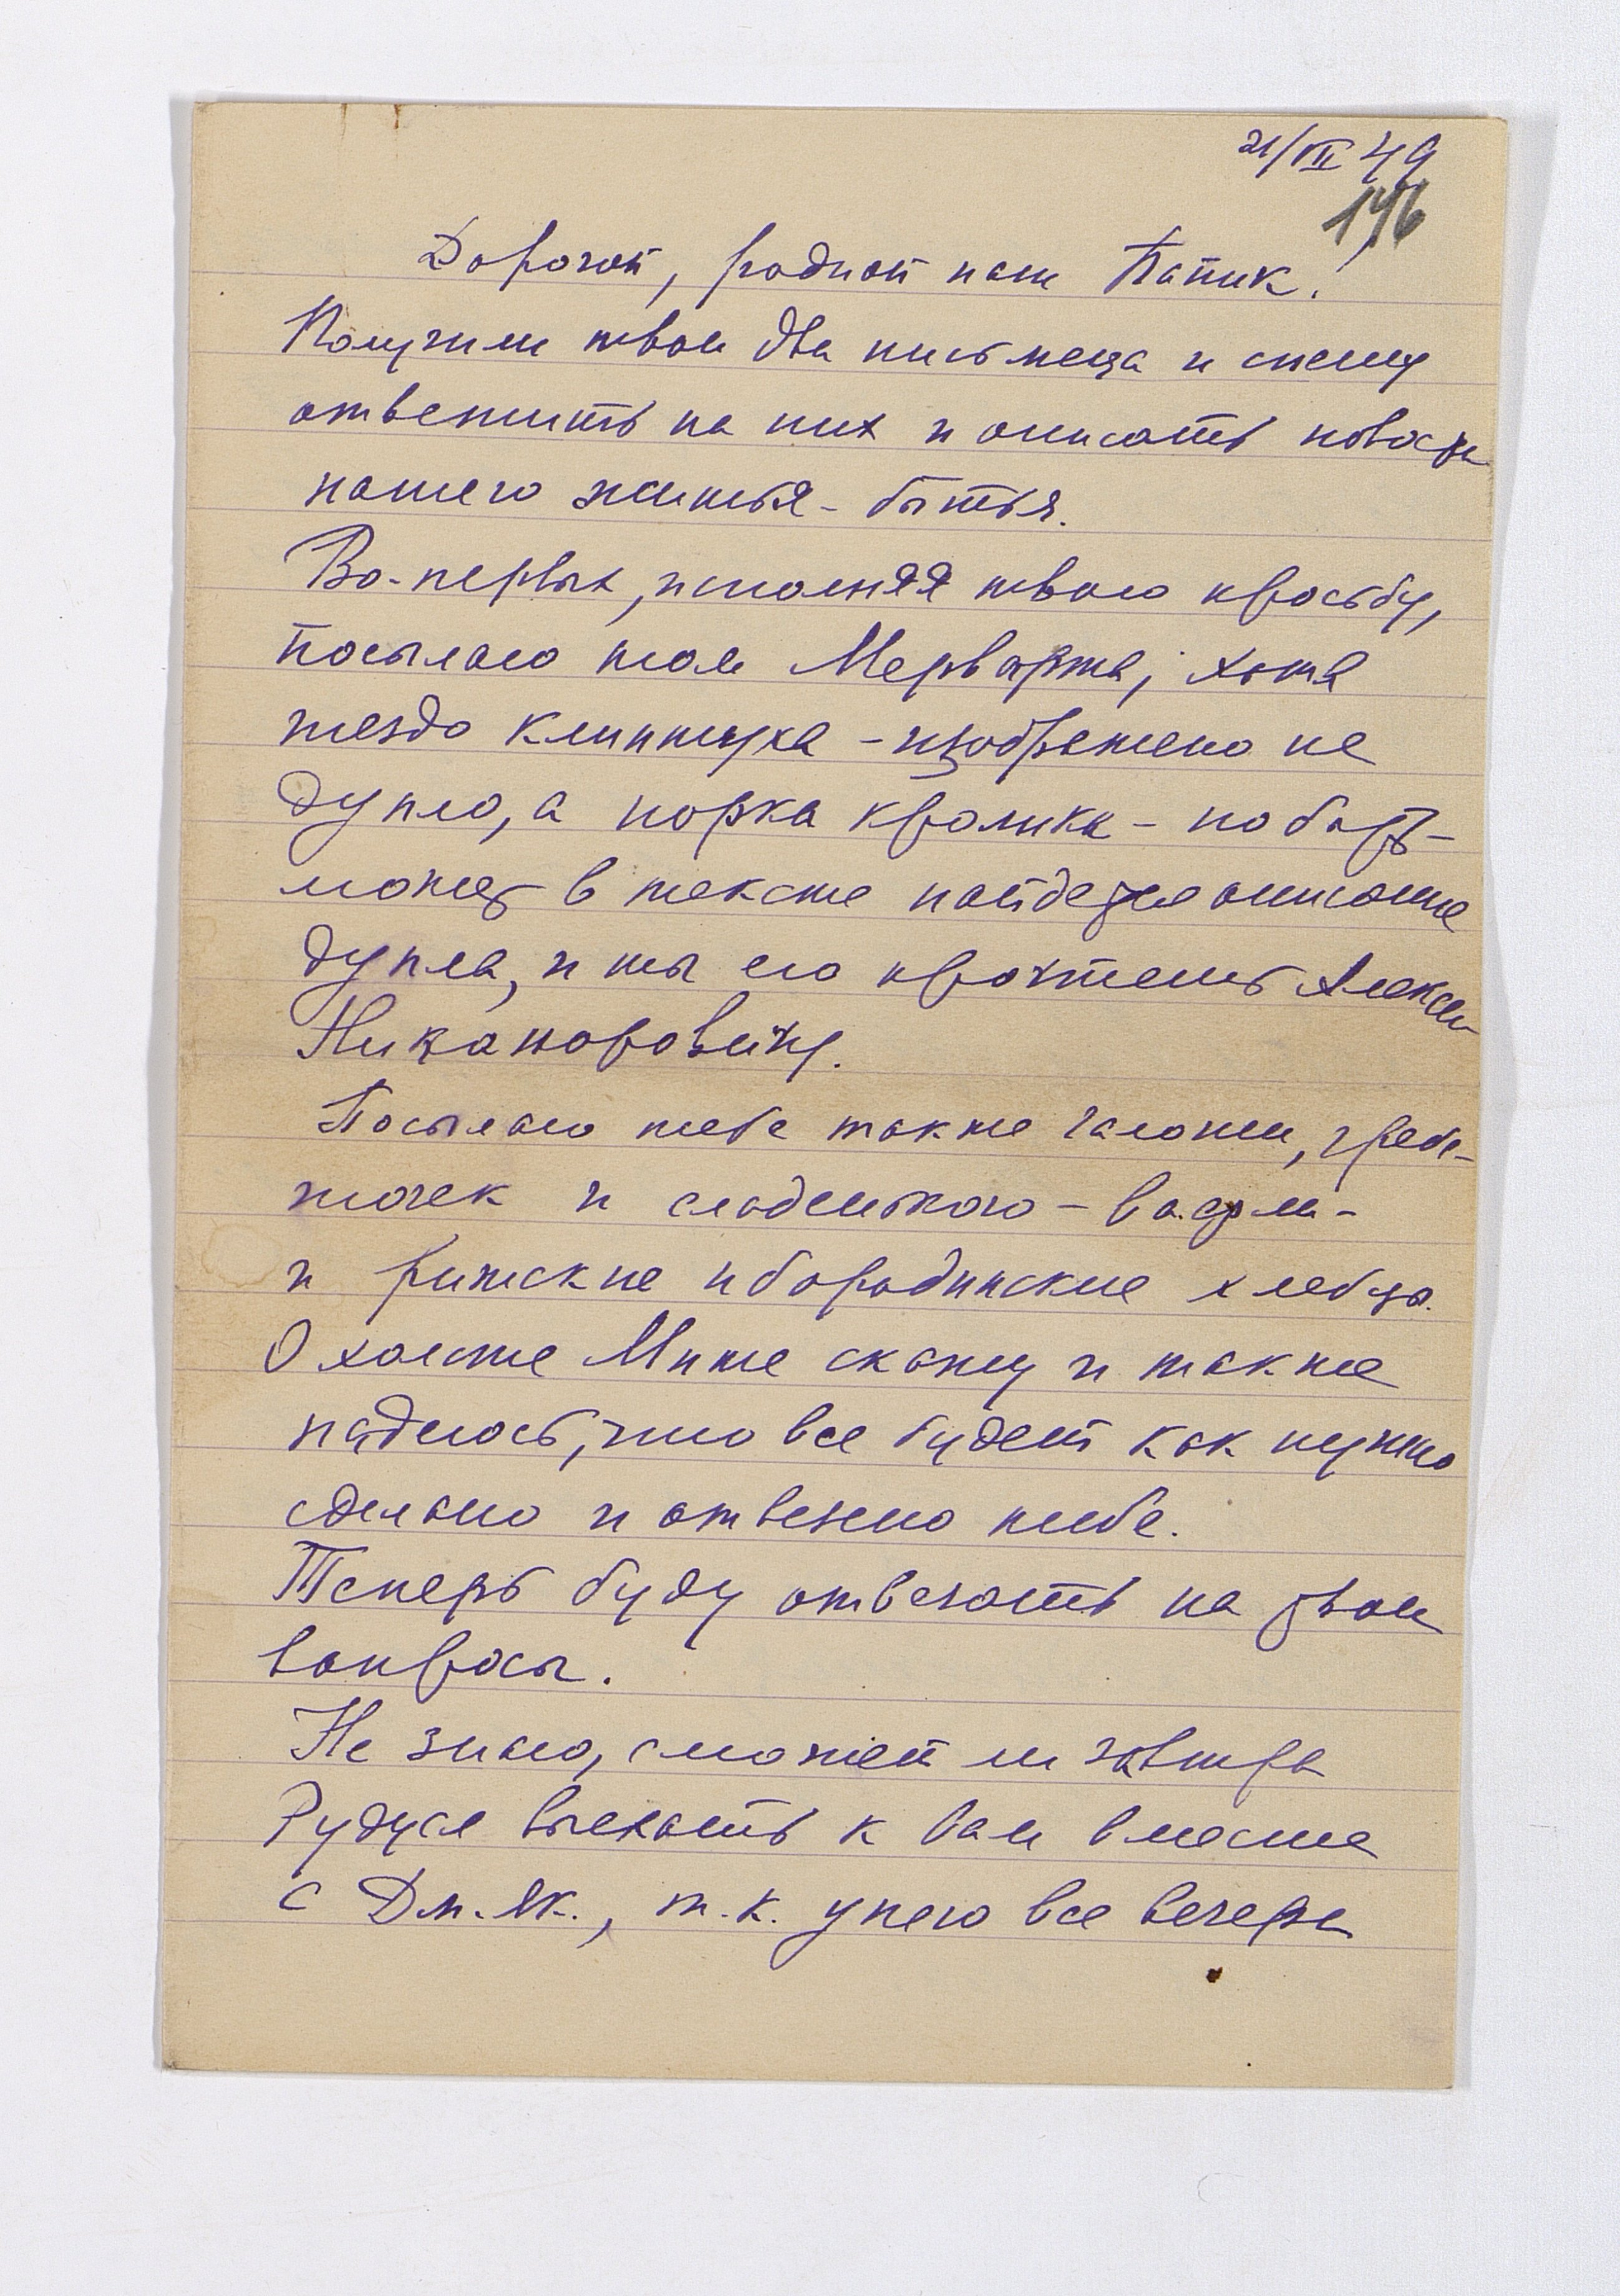 21/VII 49
146
Дорогой, родной наш Папик!
Получили твои два письмеца и спешу
ответить на них и описать новости
нашего житья-бытья.
Во-первых, исполняя твою просьбу,
посылаю том Мерварта; хотя
гнездо клинтуха - изображено не
дупло, а норка кролика - но быть
может в тексте найдется описание
дупла, и ты его прочтешь Алексею
Никаноровичу.
Посылаю тебе также галоши, гребе-
шочек и сладенького - вафли -
и рижские и бородинские хлебцы.
О холсте Мише скажу и также
надеюсь, что все будет как нужно
сделано и отвезено тебе.
Теперь буду отвечать на твои
вопросы.
Не знаю, сможет ли завтра
Рудуся выехать к вам вместе
с Дм. Як., т.к. у него все вечера